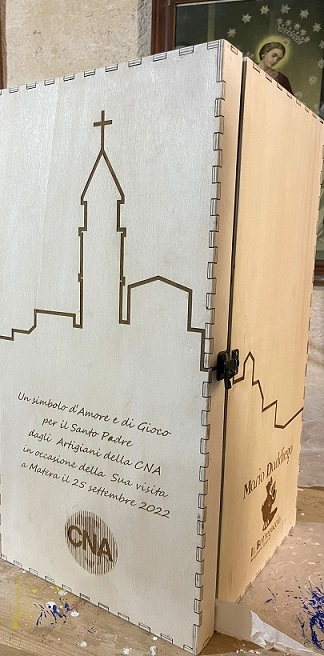 Un simbolo d'Amore e di Gioco
per il Santo Padre
dagli Artigiani della CNA
in occasione della Sua visita
a Matera il 25 settembre 2022
CNA
Mario Daddiego